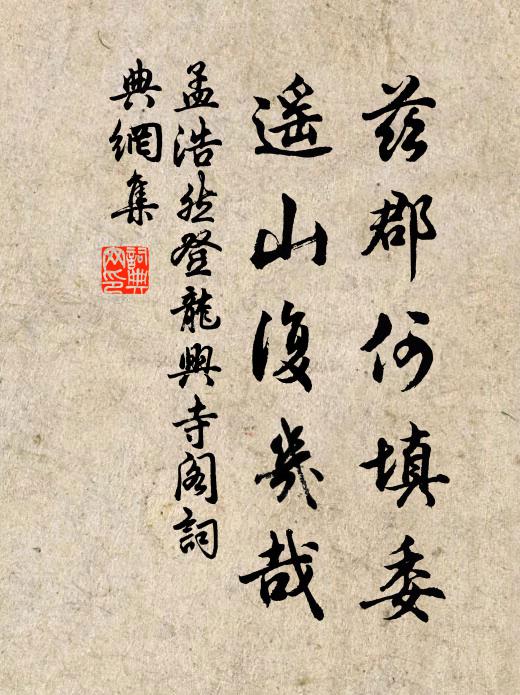 茲郡何填委
遙山復幾哉
孟浩然登龍興寺閣詞
典網集
詞典網印